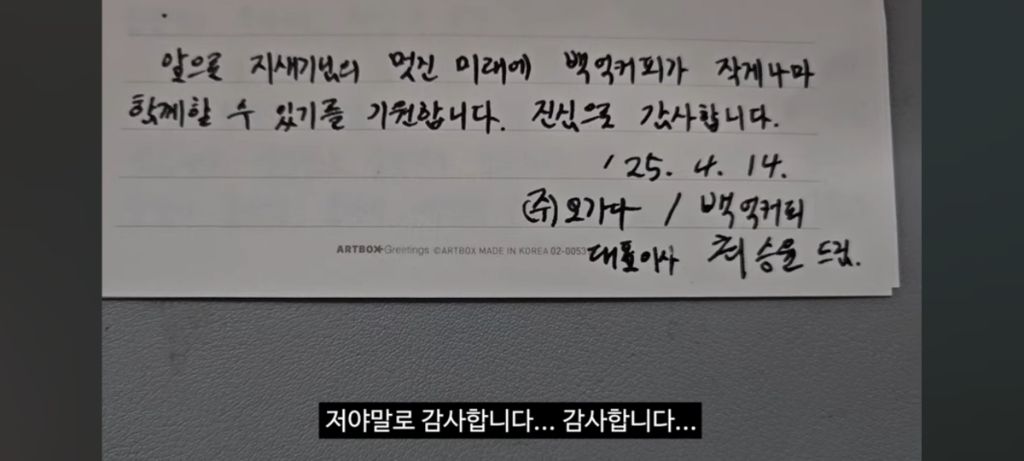 앞으로 지새기님의 멋진 미래에 백억커피가 작게나마
함께할 수 있기를 기원합니다. 진심으로 감사합니다.
'25. 4. 14.
(주)오가다 / 백억커피
ARTBOX Greetings ©ARTBOX MADE IN KOREA 02-0053
대표이사 최승윤 드림.
저야말로 감사합니다... 감사합니다...